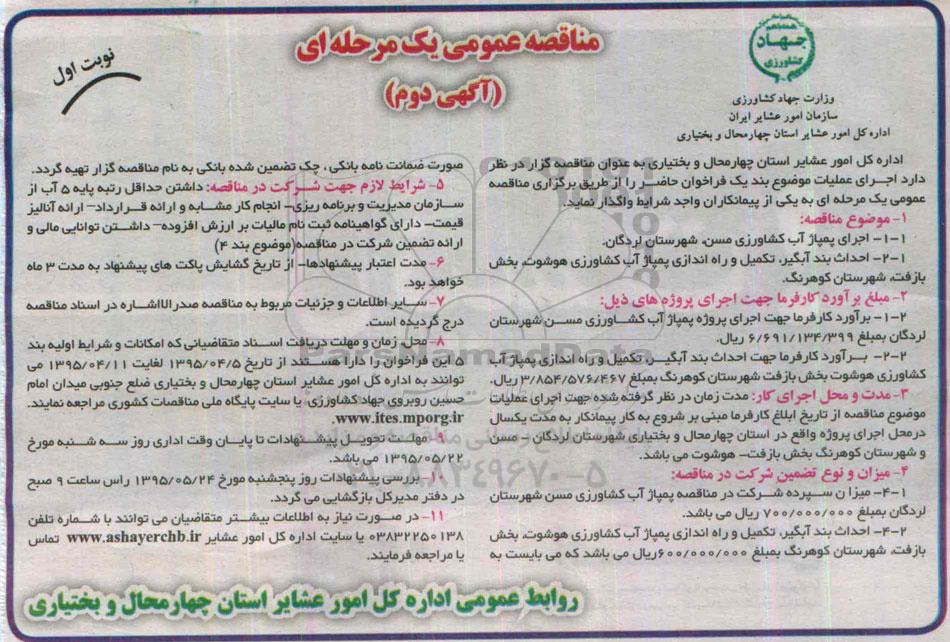 مناقصه عمومی یک مرحله ای
(آگهی دوم)
نوبت اول
جهاد
کشاورزی
وزارت جهاد کشاورزی
سازمان امور عشایر ایران
اداره کل امور عشایر استان چهارمحال و بختیاری
اداره کل امور عشایر استان چهارمحال و بختیاری به عنوان مناقصه گزار در نظر
دارد اجرای عملیات موضوع بند یک فراخوان حاضر را از طریق برگزاری مناقصه
عمومی یک مرحله ای به یکی از پیمانکاران واجد شرایط واگذار نماید.
۱- موضوع مناقصه:
۱-۱- اجرای پمپاژ آب کشاورزی مسن، شهرستان لردگان.
۲-۱- احداث بند آبگیر، تکمیل و راه اندازی پمپاژ آب کشاورزی هوشوت، بخش
بازفت، شهرستان کوهرنگ.
۲- مبلغ برآورد کارفرما جهت اجرای پروژه های ذیل:
۱-۲- برآورد کارفرما جهت اجرای پروژه پمپاژ آب کشاورزی مسن شهرستان
لردگان بمبلغ ۶/۶۹۱/۱۳۴/۳۹۹ ریال.
۲-۲- برآورد کارفرما جهت احداث بند آبگیر، تکمیل و راه اندازی پمپاژ آب
کشاورزی هوشوت بخش بازفت شهرستان کوهرنگ بمبلغ ۳/۸۵۴/۵۷۶/۴۶۷ ریال.
۳- مدت و محل اجرای کار: مدت زمان در نظر گرفته شده جهت اجرای عملیات
موضوع مناقصه از تاریخ ابلاغ کارفرما مبنی بر شروع به کار پیمانکار به مدت یکسال
درمحل اجرای پروژه واقع در استان چهارمحال و بختیاری شهرستان لردگان - مسن
و شهرستان کوهرنگ بخش بازفت- هوشوت می باشد.
۴- میزان و نوع تضمین شرکت در مناقصه:
۱-۴- میزا ن سپرده شرکت در مناقصه پمپاژ آب کشاورزی مسن شهرستان
لردگان بمبلغ ۷۰۰/۰۰۰/۰۰۰ ریال می باشد.
۲-۴- احداث بند آبگیر، تکمیل و راه اندازی پمپاژ آب کشاورزی هوشوت، بخش
بازفت، شهرستان کوهرنگ بمبلغ ۶۰۰/۰۰۰/۰۰۰ریال می باشد که می بایست به
صورت ضمانت نامه بانکی ، چک تضمین شده بانکی به نام مناقصه گزار تهیه گردد.
۵- شرایط لازم جهت شرکت در مناقصه: داشتن حداقل رتبه پایه ۵ آب از
سازمان مدیریت و برنامه ریزی- انجام کار مشابه و ارائه قرارداد- ارائه آنالیز
قیمت- دارای گواهینامه ثبت نام مالیات بر ارزش افزوده- داشتن توانایی مالی و
ارائه تضمین شرکت در مناقصه(موضوع بند ۴)
۶- مدت اعتبار پیشنهادها- از تاریخ گشایش پاکت های پیشنهاد به مدت ۳ ماه
خواهد بود.
۷- سایر اطلاعات و جزئیات مربوط به مناقصه صدرالااشاره در اسناد مناقصه
درج گردیده است.
۸- محل، زمان و مهلت دریافت اسناد متقاضیانی که امکانات و شرایط اولیه بند
۵ این فراخوان را دارا هستند از تاریخ ۱۳۹۵/۰۴/۵ لغایت ۱۳۹۵/۰۴/۱۱ می
توانند به اداره کل امور عشایر استان چهارمحال و بختیاری ضلع جنوبی میدان امام
حسین روبروی جهاد کشاورزی، یا سایت پایگاه ملی مناقصات کشوری مراجعه نمایند.
www.ites.mporg.ir
۹- مهلت تحویل پیشنهادات تا پایان وقت اداری روز سه شنبه مورخ
۱۳۹۵/۰۵/۲۲ می باشد.
۱۰- بررسی پیشنهادات روز پنجشنبه مورخ ۱۳۹۵/۰۵/۲۴ راس ساعت ۹ صبح
در دفتر مدیرکل بازگشایی می گردد.
۱۱- در صورت نیاز به اطلاعات بیشتر متقاضیان می توانند با شماره تلفن
۰۳۸۳۲۲۵۰۱۳۸ یا سایت اداره کل امور عشایر www.ashayerchb.ir تماس
یا مراجعه فرمایند.
روابط عمومی اداره کل امور عشایر استان چهارمحال و بختیاری
ParsNamadData
۰۲۱-۸۸۳۴۹۶۷۰-۵